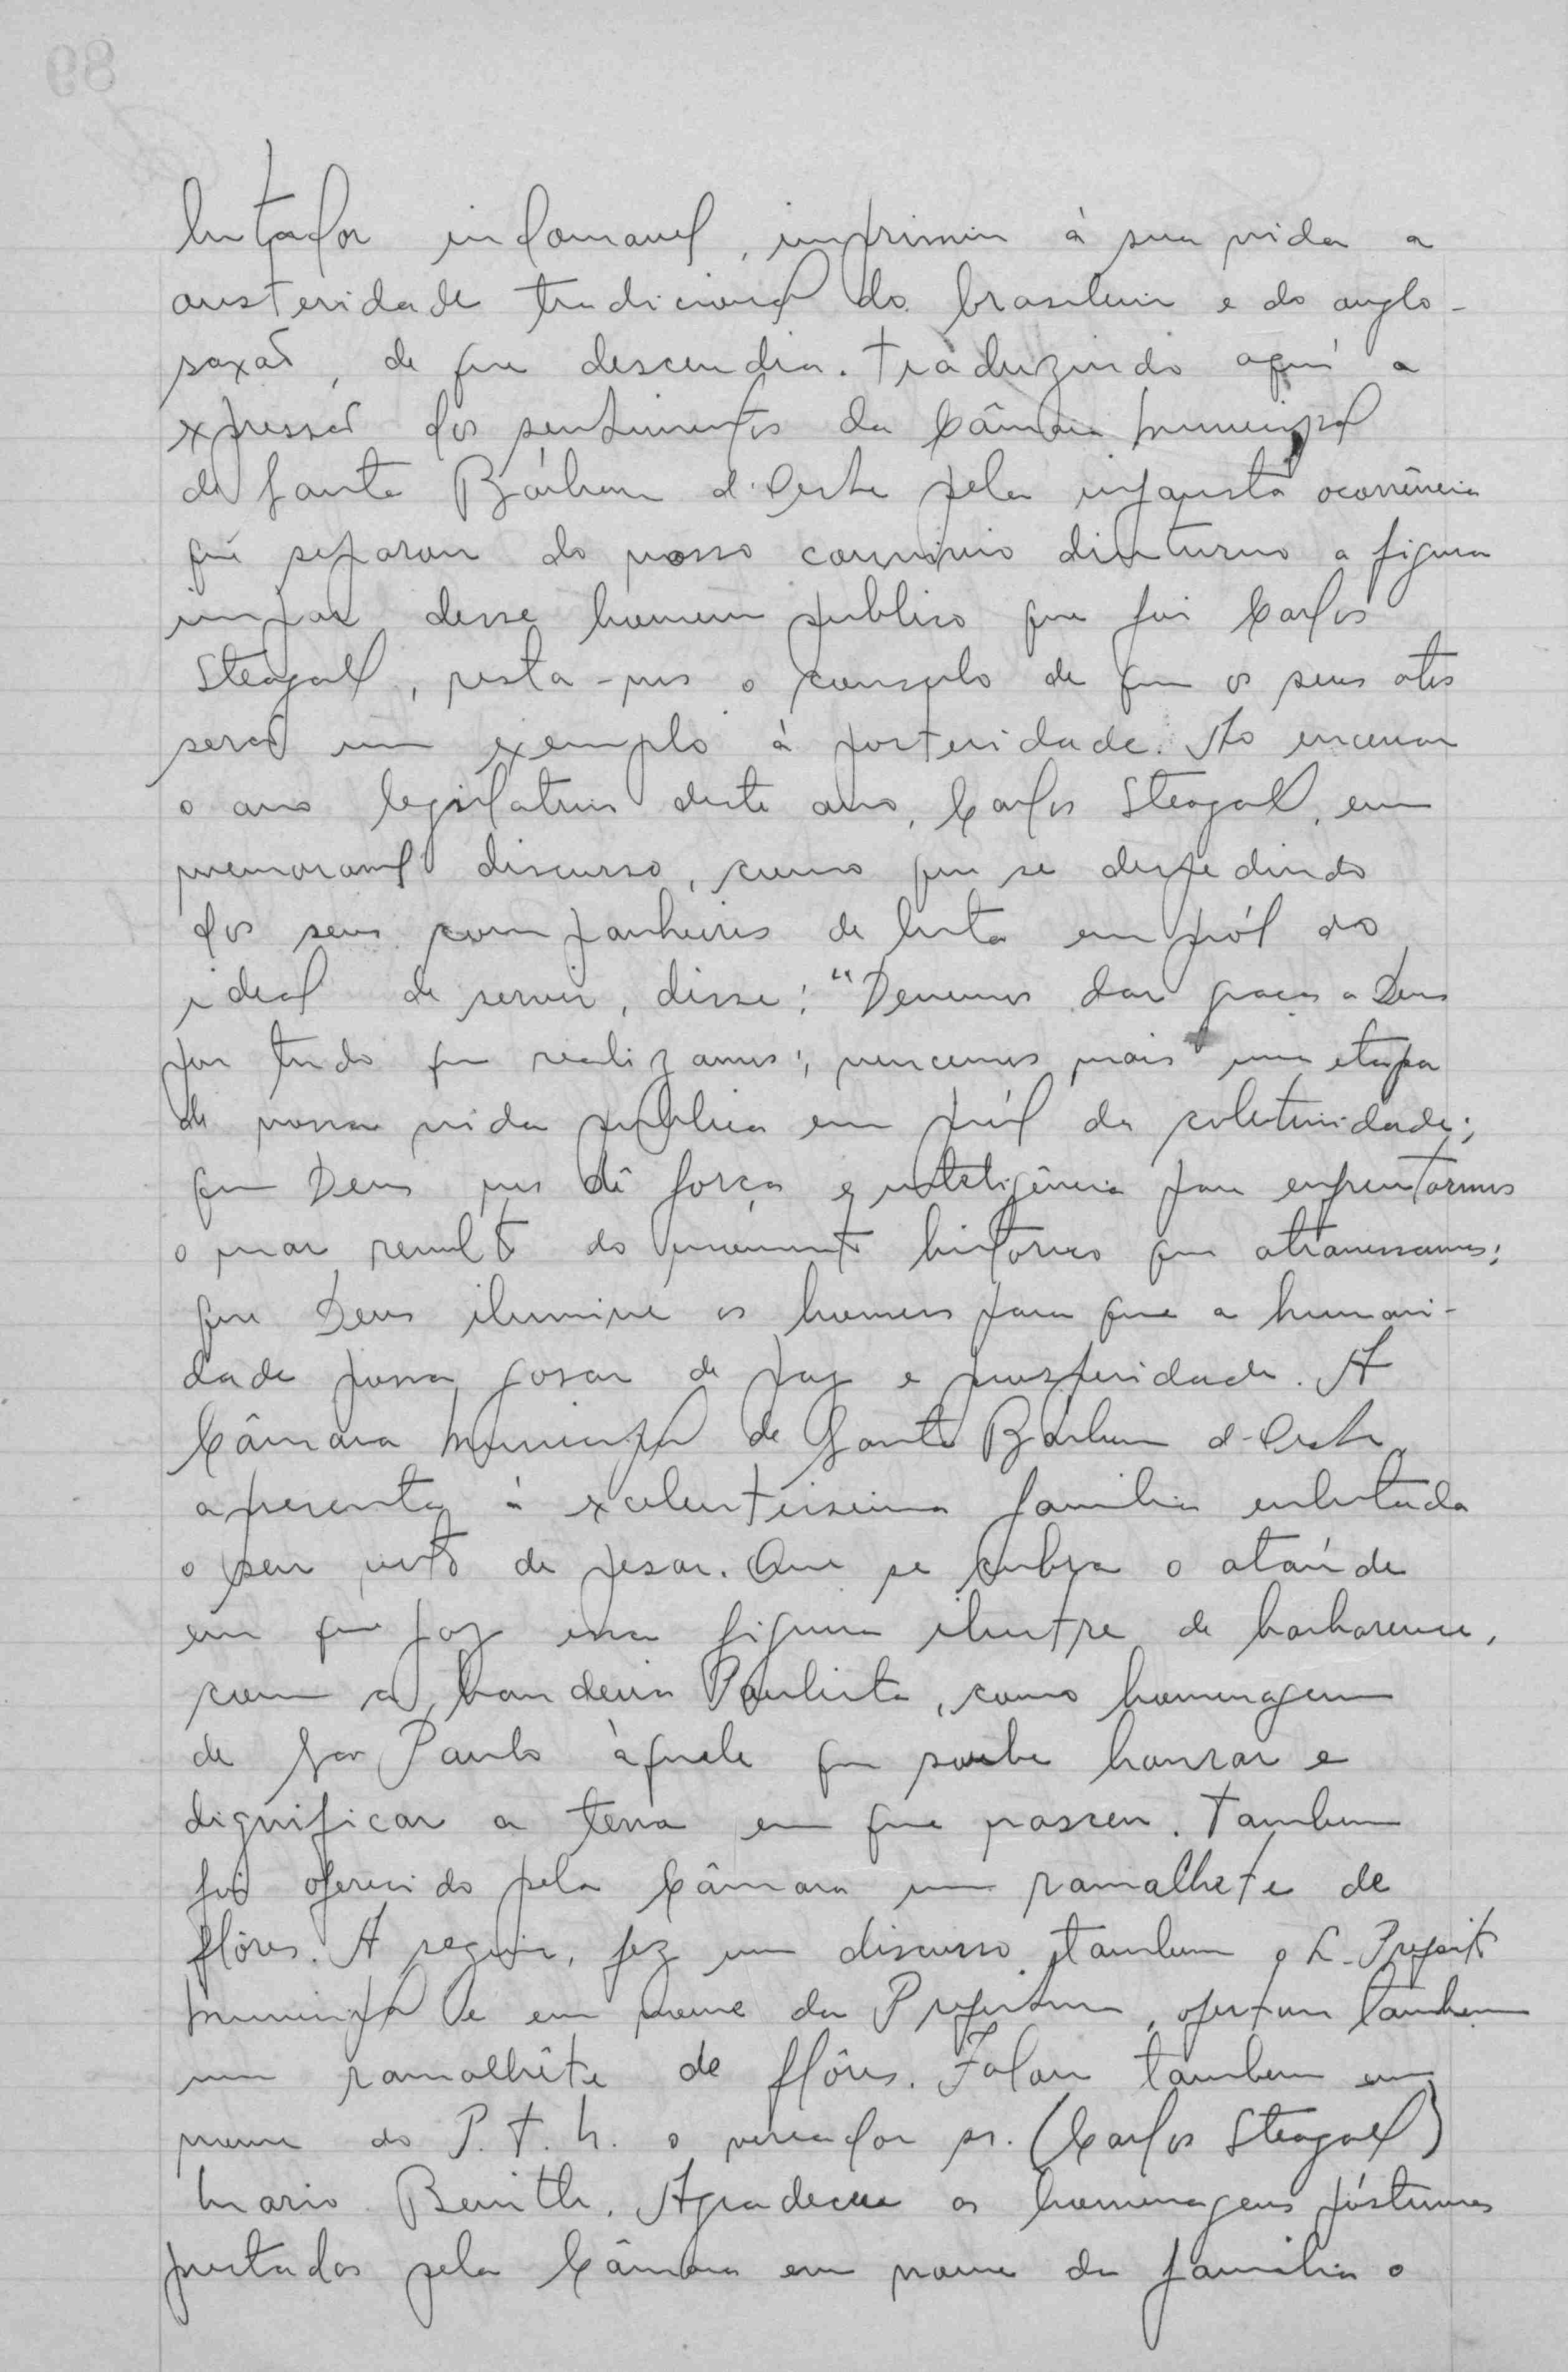 lutador indomavel, imprimiu à sua vida a
austeridade tradicional do brasileiro e do anglo-
saxão, de que descendia. Traduzindo aqui a
expressão dos sentimentos da Câmara Municipal
de Santa Bárbara d'Oeste pela infausta ocorrência
que separou do nosso convivio diuturno a figura
impar desse homem publico que foi Carlos
Steagall, resta-nos o consolo de que os seus atos
serão um exemplo à posteridade. Ao encerrar
o ano legislativo deste ano, Carlos Steagall, em
memoravel discurso, como que se despedindo
dos seus companheiros de luta em pról do
ideal de servir, disse: "Devemos dar graças a Deus
por tudo que realizamos; vencemos mais uma etapa
de nossa vida publica em pról da coletividade;
que Deus nos dê força e inteligência para enfrentarmos
o mar revolto do momento historico que atravessamos;
que Deus ilumine os homens para que a humani-
dade possa gosar de paz e prosperidade. A
Câmara Municipal de Santa Bárbara d'Oeste,
apresenta à excelentissima familia enlutada
o seu voto de pesar. Que se cubra o ataúde
em que jaz essa figura ilustre de barbarense,
com a bandeira Paulista, como homenagem
de São Paulo àquele que soube honrar e
dignificar a terra em que nasceu. Tambem
foi oferecido pela Câmara um ramalhete de
flôres. A seguir, fez um discurso tambem o S. Prefeito
Municipal e em nome da Prefeitura, ofertou tambem
um ramalhête de flôres. Falou tambem em
nome do P.T.N. o vereador sr. (Carlos Steagall)
Mario Benith. Agradeceu as homenagens póstumas
prestadas pela Câmara em nome da familia o